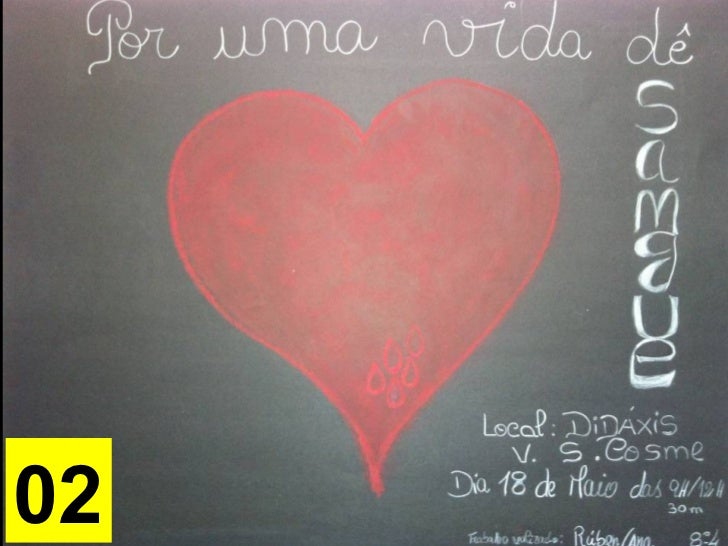 Por uma vida dê
sangue
Local: DiDÁXIS
V. S. Cosme
Dia 18 de Maio das 9H/12H
30m
Trabalho realizado: Rúben/Ana 8º4
02